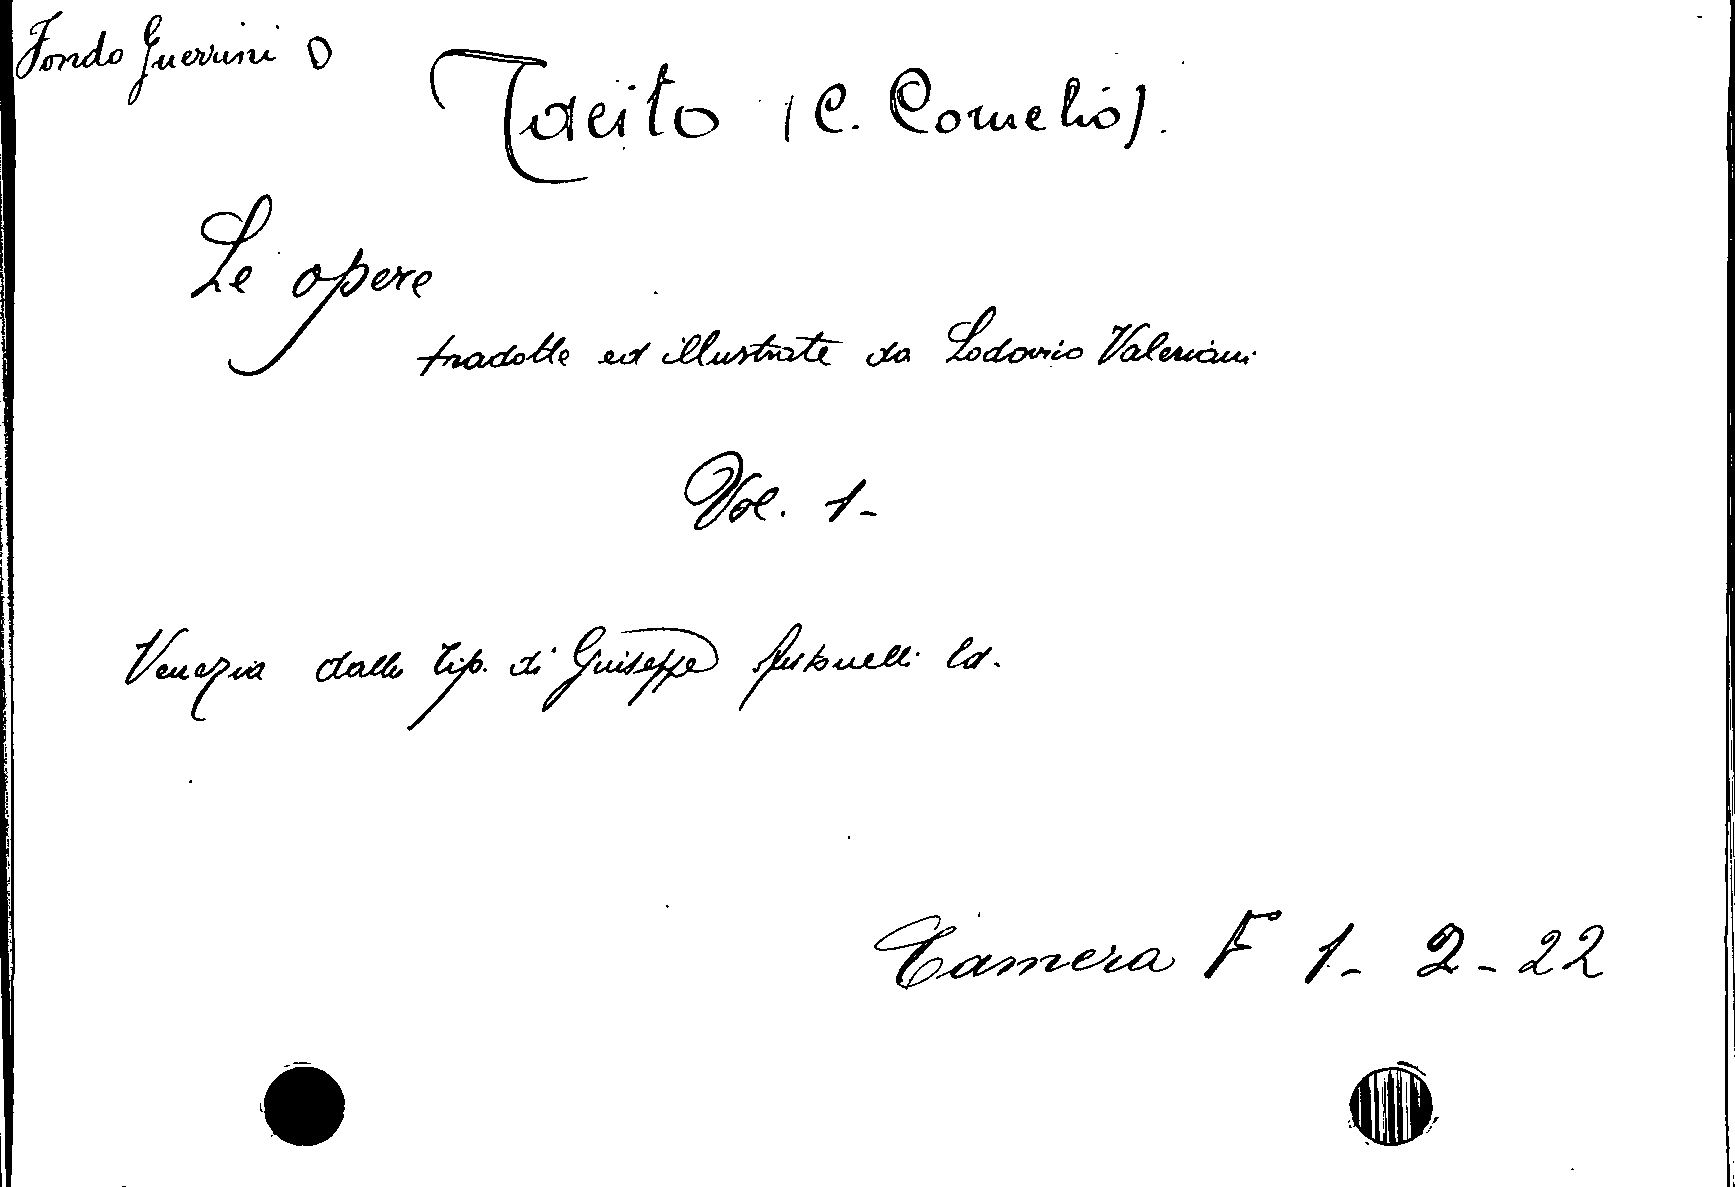 Fondo Guerrini D
Tacito (C. Cornelio).
Le opere
tradotte ed illustrate da Lodovico Valeriani
Vol. 1-
Venezia dalla tip. di Giuseppe Antonelli Ed.
Camera F 1- 2-22